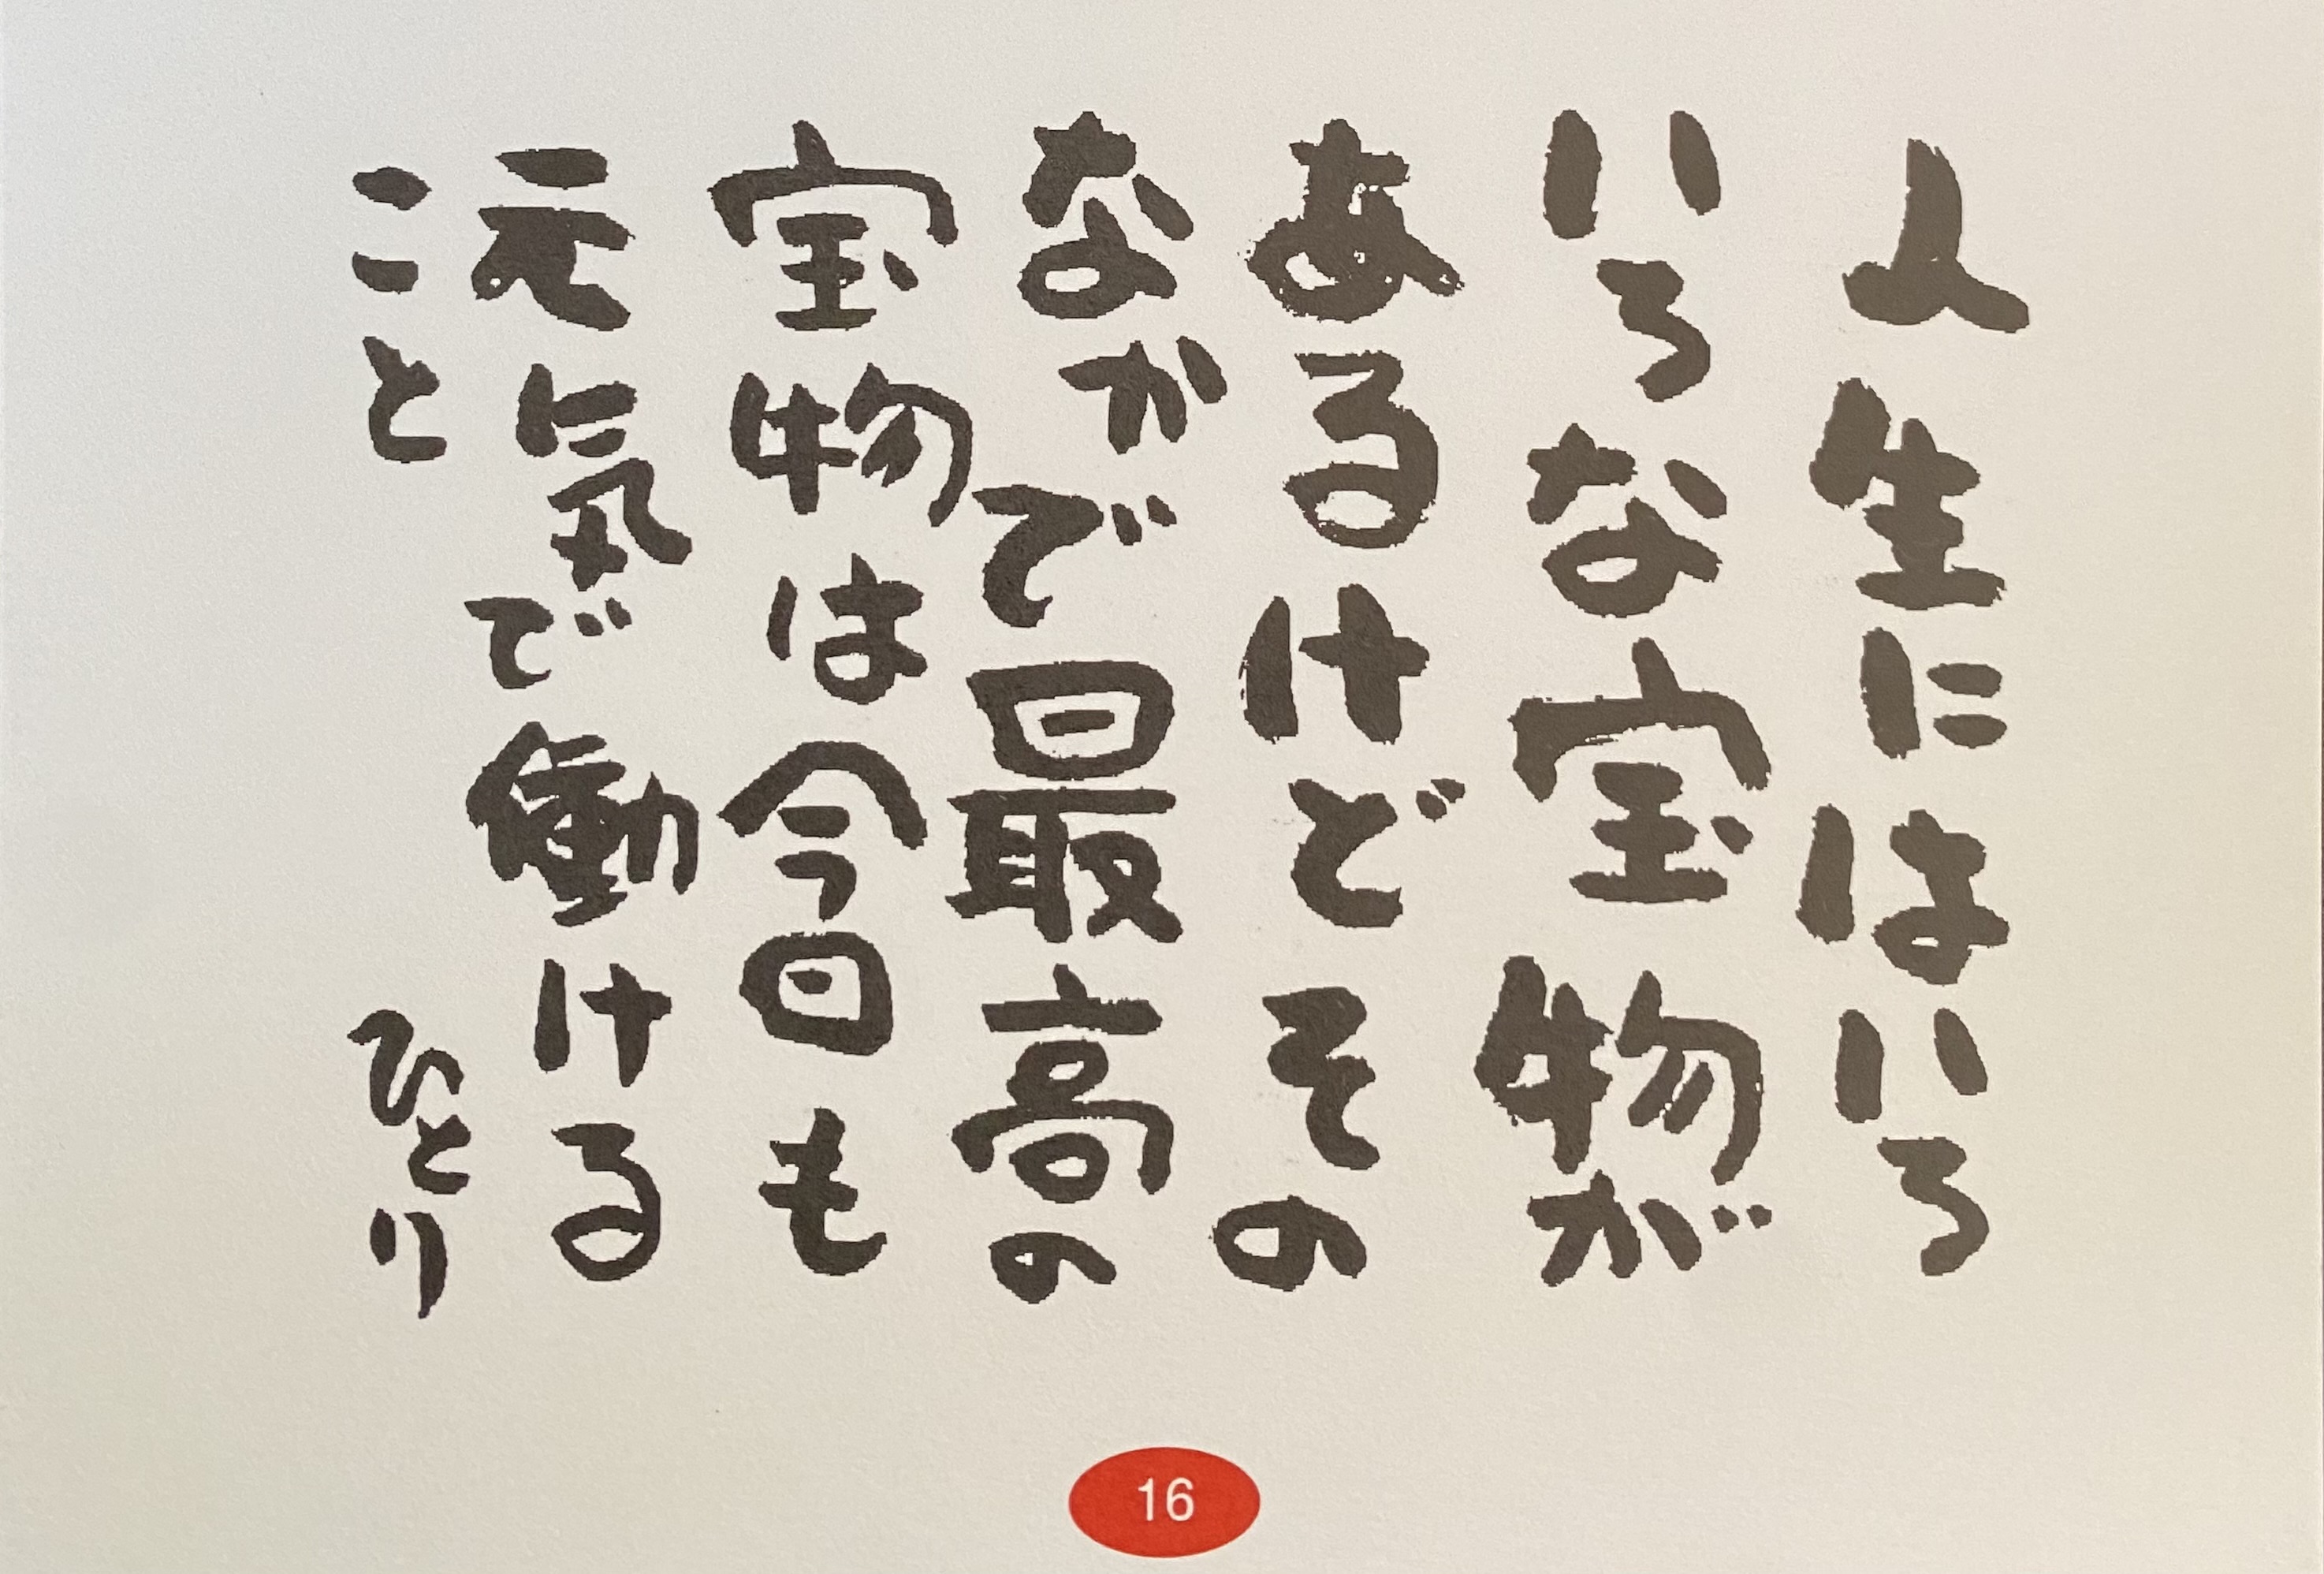 人生にはいろ
いろな宝物が
あるけどその
なかで最高の
宝物は今日も
元気で働ける
こと
ひとり
16